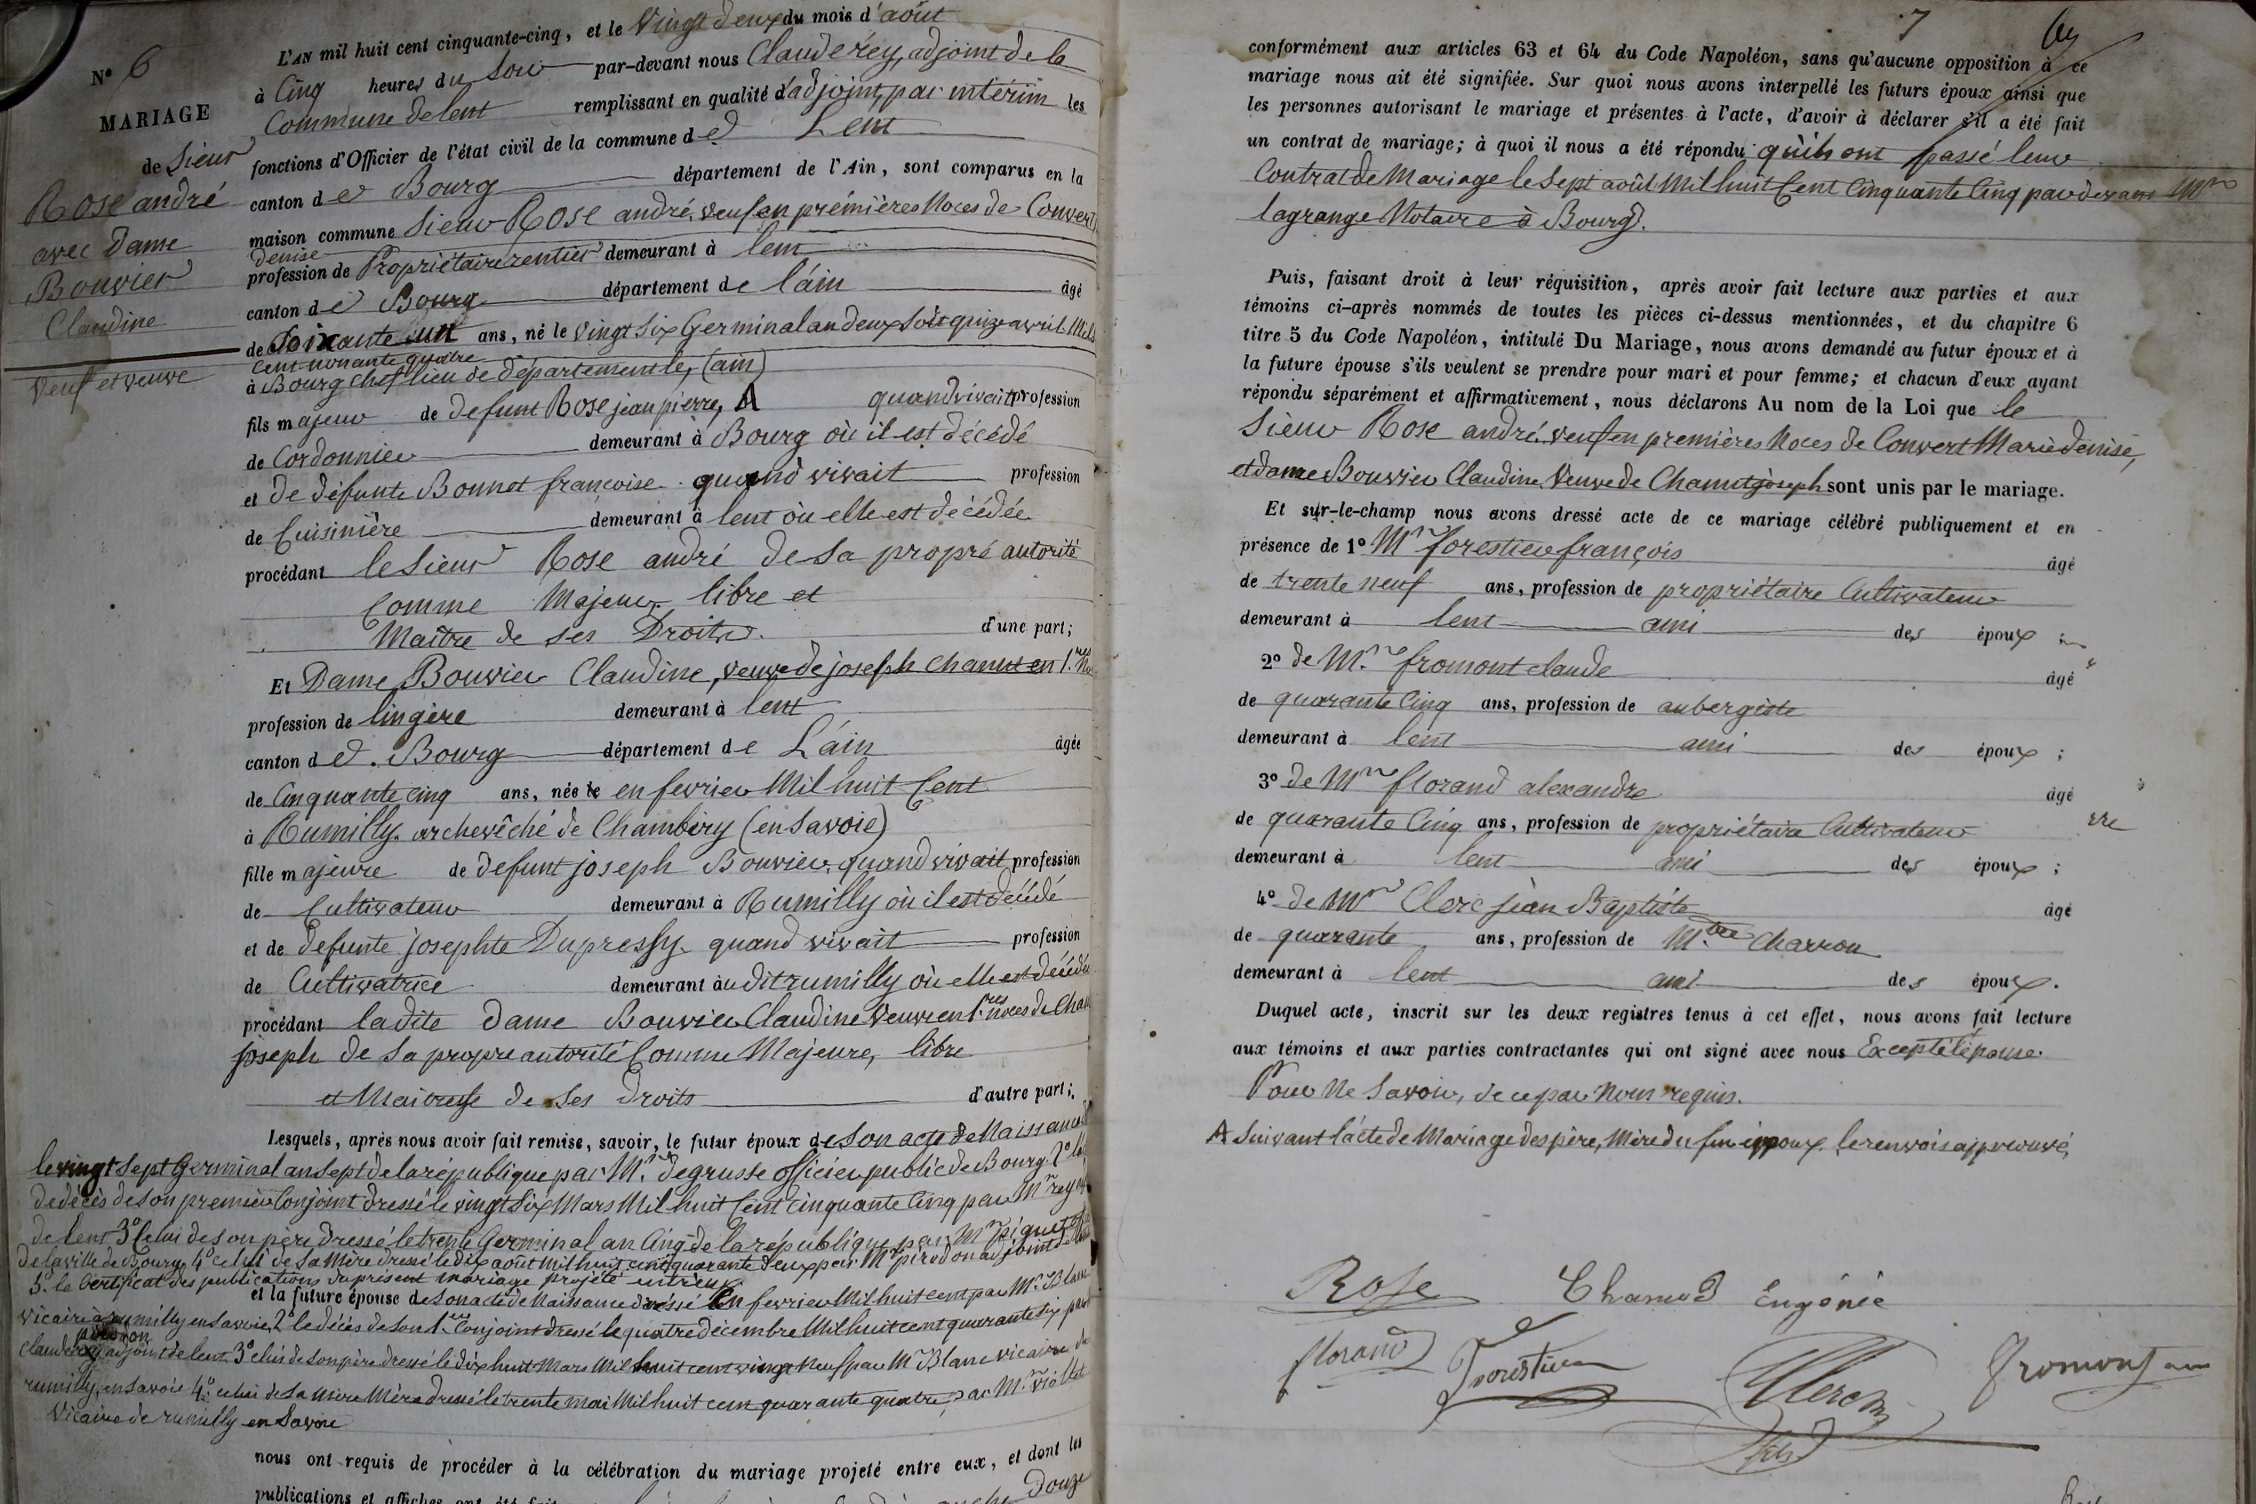 N° 6
MARIAGE
de Sieur
Rose andré
avec Dame
Bouvier
Claudine
Veuf et veuve
L'AN mil huit cent cinquante-cinq, et le Vingt deux du mois d'août
à Cinq heures du Soir par-devant nous Claude réy, adjoint de la
Commune de lent remplissant en qualité d'adjoint, par intérim les
fonctions d'Officier de l'état civil de la commune de Lent
canton de Bourg département de l'Ain, sont comparus en la
maison commune Sieur Rose andré, veuf en prémières Noces de Convert
denise
profession de Propriétaire rentier demeurant à lent
canton de Bourg département de l'ain âgé
de Soixante un ans, né le vingt Six Germinal an deux Soit quize avril Mil
Cent nonante quatre
à Bourg Chef lieu de département le, (ain)
fils majeur de defunt Rose jean pierre, A quand vivait profession
de Cordonnier demeurant à Bourg où il est décédé
et de défunte Bonnet françoise quand vivait profession
de Cuisinière demeurant à lent où elle est décédée
procédant le Sieur Rose andré de Sa propré autorité
Comme Majeur libre et
Maître de Ses Droits. d'une part;
Et Dame Bouvier Claudine, veuve de joseph Chanut en 1.res No
profession de lingère demeurant à lent
canton de Bourg département de L'ain âgée
de Cinquante cinq ans, née le en fevrier Mil huit Cent
à Rumilly archevêché de Chambéry (en Savoie)
fille majeure de defunt joseph Bouvier, quand vivait profession
de Cultivateur demeurant à Rumilly où il est décédé
et de defunte josephte Dupressy quand vivait profession
de Cultivatrice demeurant au dit rumilly où elle est décédée
procédant ladite dame Bouvier Claudine Veuve en 1.res noces de Chan
joseph de Sa propre autorité Comme Majeure, libre
et Maitresse de Ses Droits d'autre part;
Lesquels, après nous avoir fait remise, savoir, le futur époux de Son acte de Naissance
le vingt Sept Germinal an Sept de la république par Mr. degrusse officier public de Bourg 2° 
de décès de son premier Conjoint dressé le vingt Six Mars Mil huit Cent Cinquante Cinq par Mr rey
de lent 3° Celui de Son père dressé le trente Germinal an Cinq de la république par Mr piquet
de la ville de Bourg, 4° celui de Sa Mère dressé le dix août Mil huit cent quarante deux par Mr pirodon adjoint de
5° le Certificat des publications du présent mariage projeté
et la future épouse de Son acte de Naissance dressé en fevrier Mil huit cent par Mr. Blanc
vicaire à rumilly en Savoie, 2° le décès de Son 1.er Conjoint dressé le quatre décembre Mil huit cent quarante Six par
Claude adjoint de lent 3° celui de Son père dressé le dix huit Mars Mil huit cent vingt Neuf par Mr Blanc vicaire de
rumilly, en Savoie 4° celui de Sa Mère Mère dressé le trente mai Mil huit cent quarante quatre, par Mr. Viollet
Vicaire de rumilly en Savoie
nous ont requis de procéder à la célébration du mariage projeté entre eux, et dont les
publications et affiches ont été Douze
7
conformément aux articles 63 et 64 du Code Napoléon, sans qu'aucune opposition à ce
mariage nous ait été signifiée. Sur quoi nous avons interpellé les futurs époux ainsi que
les personnes autorisant le mariage et présentes à l'acte, d'avoir à déclarer s'il a été fait
un contrat de mariage; à quoi il nous a été répondu qu'ils ont passé leur
Contrat de Mariage le Sept août Mil huit Cent Cinquante Cinq par devant Mre
lagrange Notaire à Bourg.
Puis, faisant droit à leur réquisition, après avoir fait lecture aux parties et aux
témoins ci-après nommés de toutes les pièces ci-dessus mentionnées, et du chapitre 6
titre 5 du Code Napoléon, intitulé Du Mariage, nous avons demandé au futur époux et à
la future épouse s'ils veulent se prendre pour mari et pour femme; et chacun d'eux ayant
répondu séparément et affirmativement, nous déclarons Au nom de la Loi que le
Sieur Rose andré veuf en premières Noces de Convert Marie denise,
et dame Bouvier Claudine Veuve de Chanut joseph sont unis par le mariage.
Et sur-le-champ nous avons dressé acte de ce mariage célébré publiquement et en
présence de 1° Mr forestier françois âgé
de trente neuf ans, profession de propriétaire Cultivateur
demeurant à lent ami des époux ;
2° de Mr. fromont claude âgé
de quarante Cinq ans, profession de aubergiste
demeurant à lent ami des époux ;
3° de Mr florand alexandre âgé
de quarante Cinq ans, profession de propriétaire Cultivateur
demeurant à lent ami des époux ;
4° de Mr Clerc jean Baptiste âgé
de quarante ans, profession de M.tre Charron
demeurant à lent ami des époux.
Duquel acte, inscrit sur les deux registres tenus à cet effet, nous avons fait lecture
aux témoins et aux parties contractantes qui ont signé avec nous Excepté l'épouse
Pour Ne Savoir, de ce par Nous requis.
A Suivant l'acte de Mariage des père, Mère du fur époux le renvois approuvé,
Rose
Chanud Eugénie
florand
Forestier
Clerc
fils
Fromont